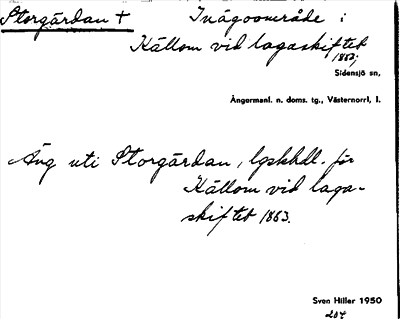 Storgärdan + Inägoområde i
Källom vid lagaskiftet
1863;
Sidensjö sn,
Ångermanl. n. doms. tg., Västernorrl. l.
Äng uti Storgärdan, lgskhdl. för
Källom vid laga-
skiftet 1863.
Sven Hiller 1950
204